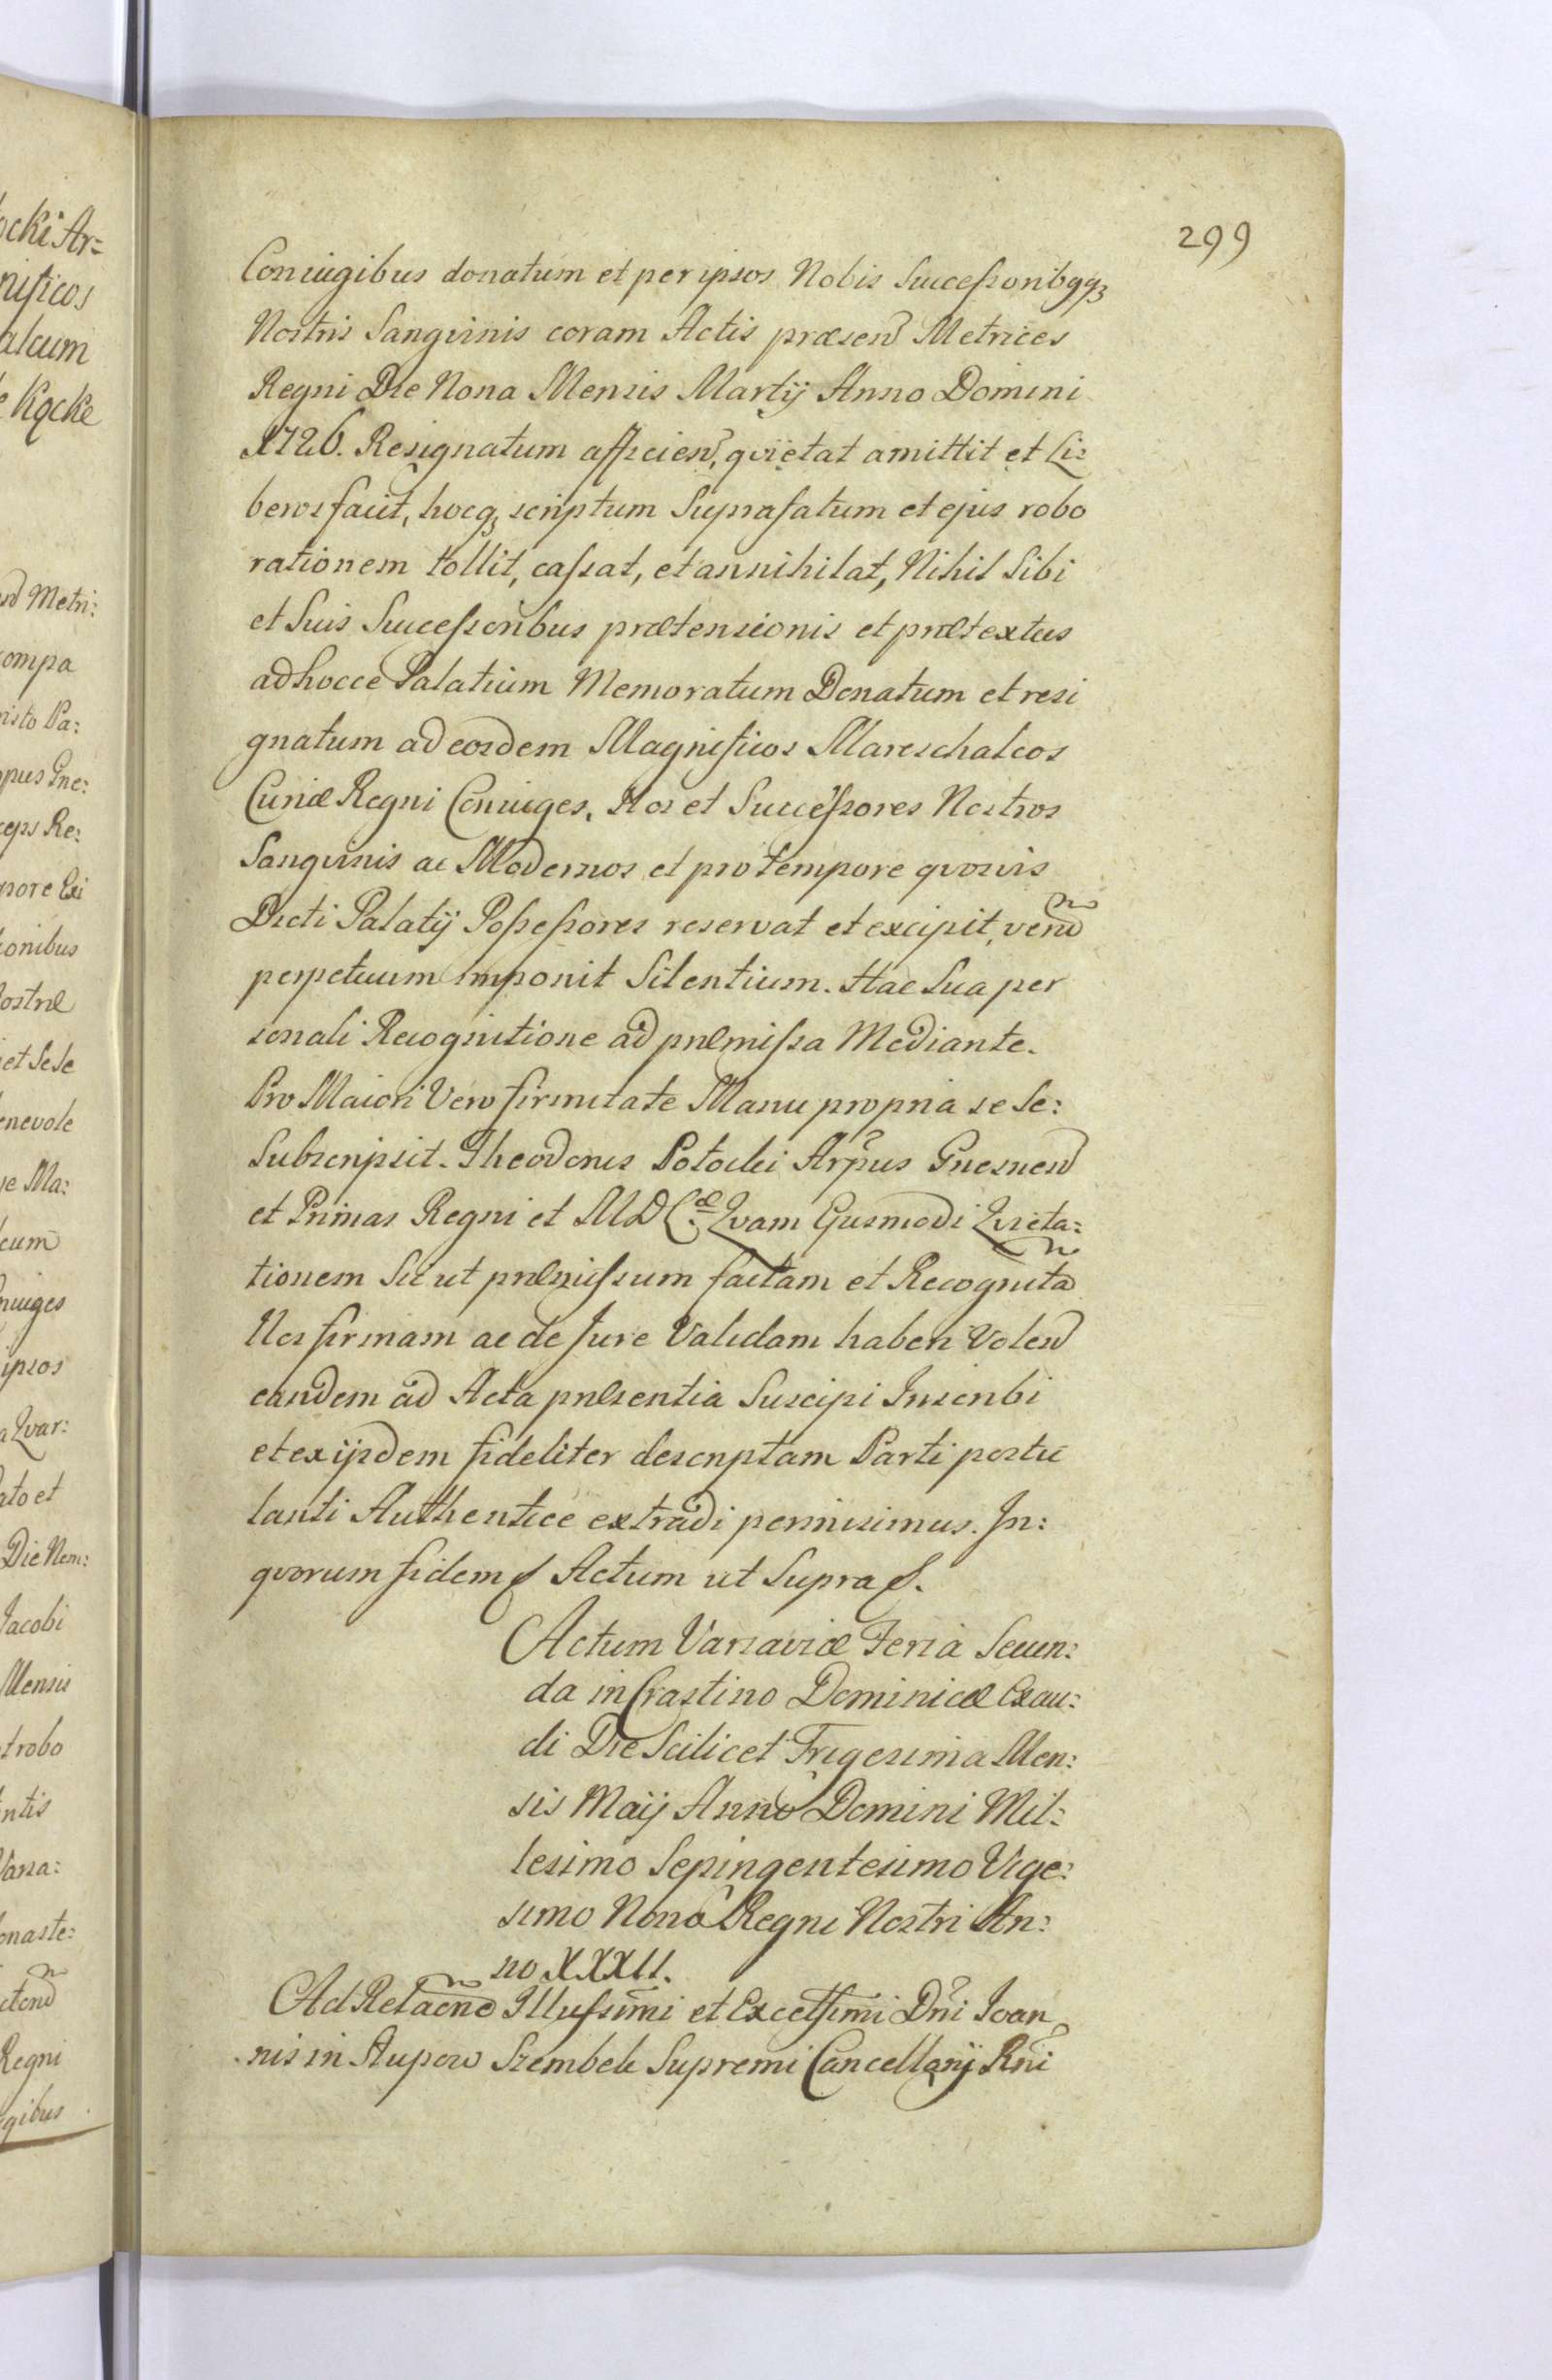 299
Coniugibus donatum et per ipsos Nobis Successoribqq3
Nostris Sangvinis coram Actis præsen Metrices
Regni Die Nona Mensis Martij Anno Domini
1726. Resignatum afficien, qvietat amittit et Li:
beros facit, hocq3 scriptum Suprafatum et ejus robo
rationem tollit, cassat, et annihilat, Nihil Sibi
et Suis Successoribus prætensionis et prætextus
ad hocce Palatium Memoratum Donatum et resi
gnatum ad eosdem Magnificos Mareschalcos
Curiæ Regni Coniuges, Nos et Successores Nostros
Sangvinis ac Modernos et pro tempore qvosvis
Dicti Palatij Possessores reservat et excipit, verũ
perpetuum imponit Silentium. Hac Sua per
sonali Recognitione ad præmissa Mediante.
Pro Maiori Vero firmitate Manu propria se se:
Subscripsit. Theodorus Potocki Arpus Gnesnen
et Primas Regni et MDLæ. Qvam Eiusmodi Qvieta:
tionem Sic ut præmissum factam et Recognitã
Nos firmam ac de Jure Validam haberi Volen
eandem ad Acta præsentia Suscipi Inscribi
et ex ijsdem fideliter descriptam Parti postu
lanti Authentice extradi permisimus. In:
qvorum fidem Actum ut Supra.
Actum Varsaviæ Feria Secun:
da in Crastino Dominicæ Exau:
di Die Scilicet Trigesima Men:
sis Maij Anno Domini Mil:
lesimo Sepingentesimo Vige:
simo Nono Regni Nostri An:
no XXXII.
Ad Relãcne Illussimi et Excelssimi Dni Joan
nis in Slupow Szembek Supremi Cancellarij Rni